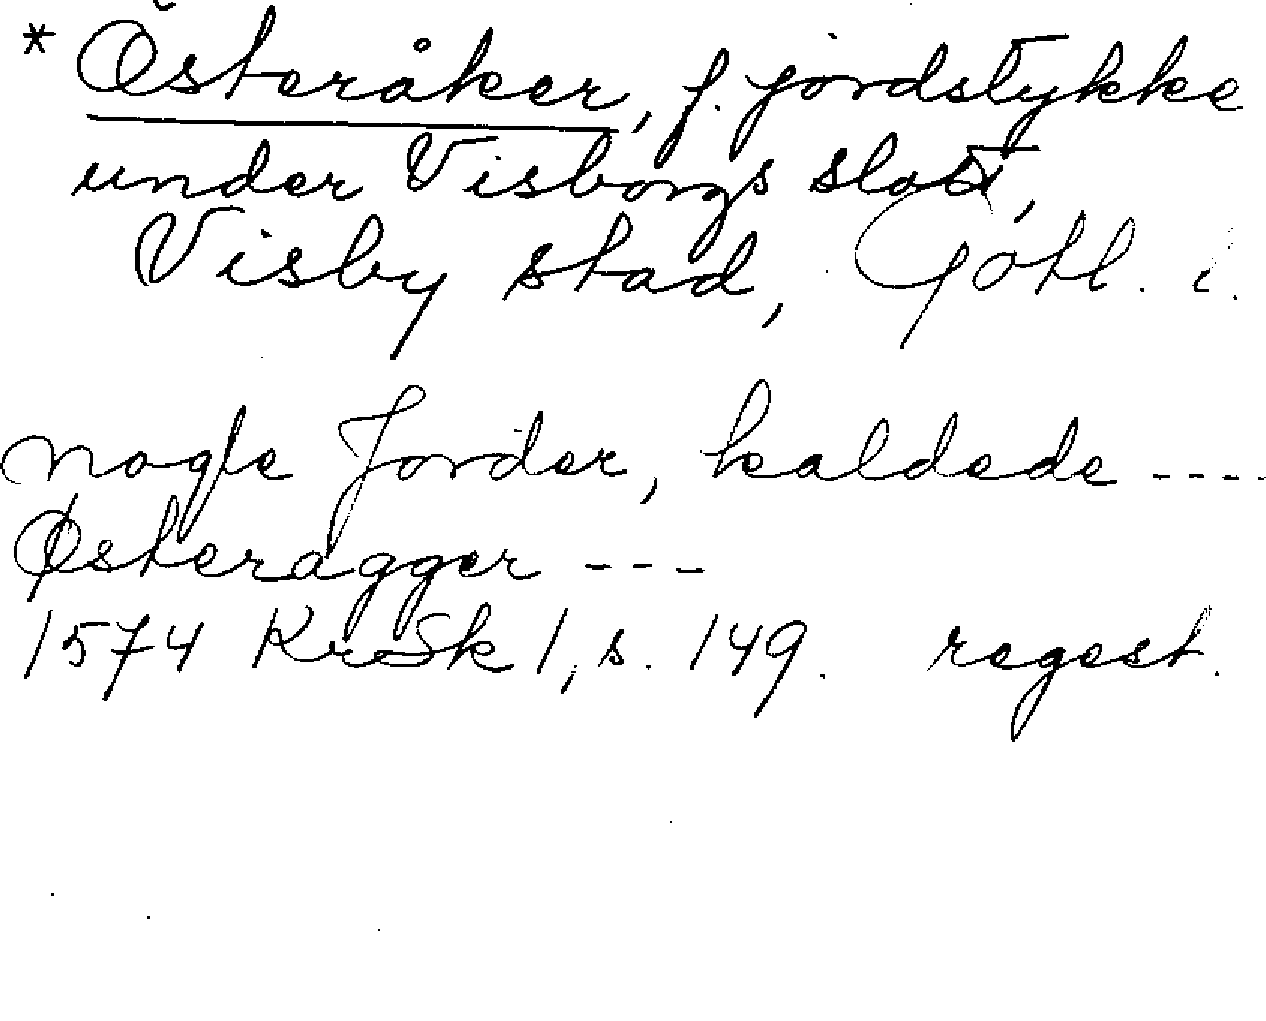 * Österåker, f. jordstykke
under Visborgs slott,
Visby stad, Gotl. l.
nogle Jorder, kaldede ----
Østeragger ---
1574 KrSk 1, s. 149. regest.